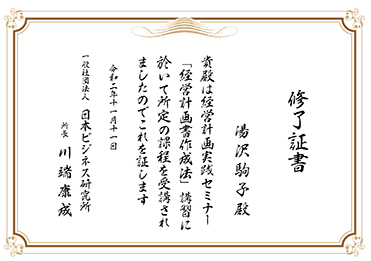 修了証書
湯沢駒子殿
貴殿は経営計画実践セミナー
「経営計画書作成法」講習に
於いて所定の課程を受講され
ましたのでこれを証します
令和二年十一月十一日
一般社団法人 日本ビジネス研究所
所長 川端康成